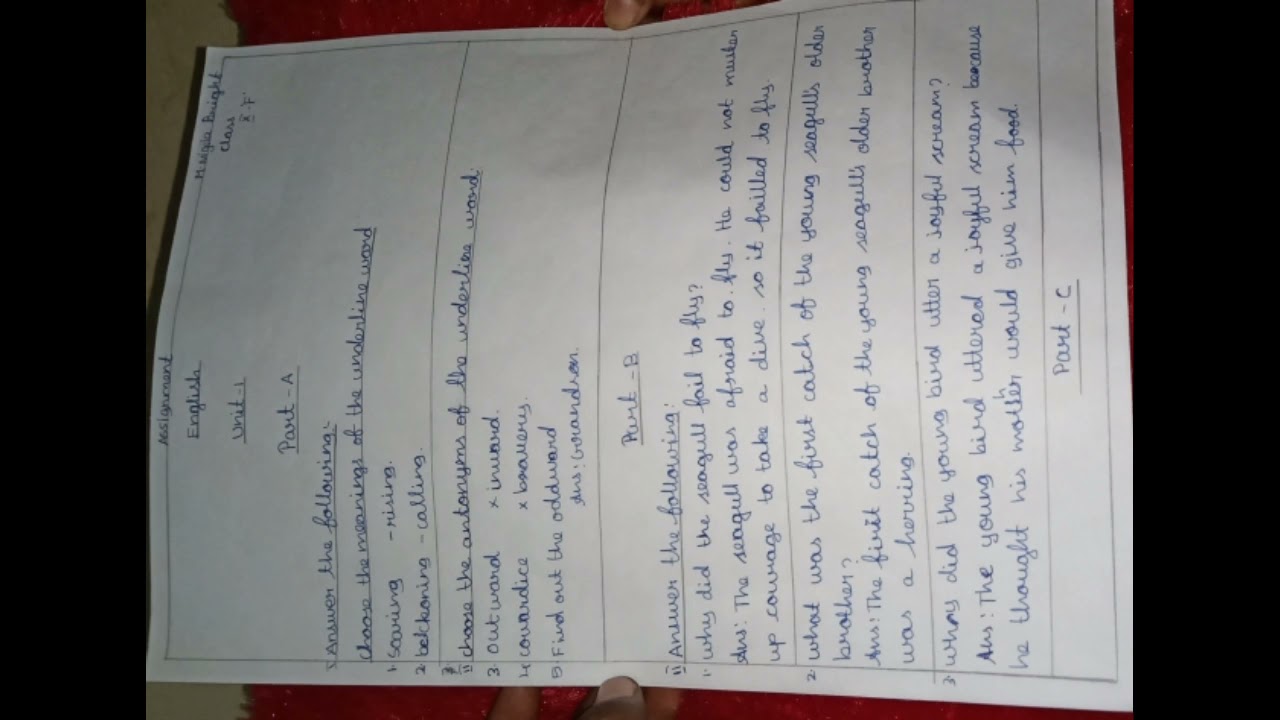 Assignment
M. Sigila Bright
English
Class
X 'F'
Unit-1
Part-A
I. Answer the following:-
Choose the meanings of the underline word
1. Soaring - rising.
2. beckoning - calling.
II choose the antonyms of the underline word:
3. outward x inward.
4 cowardice x bravery.
5. Find out the oddword
Ans: Grandson.
Part-B
II Answer the following:
1. why did the seagull fail to fly?
Ans: The seagull was afraid to fly. He could not muster
up courage to take a dive. so it failled to fly.
2. what was the first catch of the young seagull's older
brother?
Ans: The first catch of the young seagull's older brother
was a herring.
3. why did the young bird utter a joyful scream?
Ans: The young bird uttered a joyful scream because
he thought his mother would give him food.
Part-C